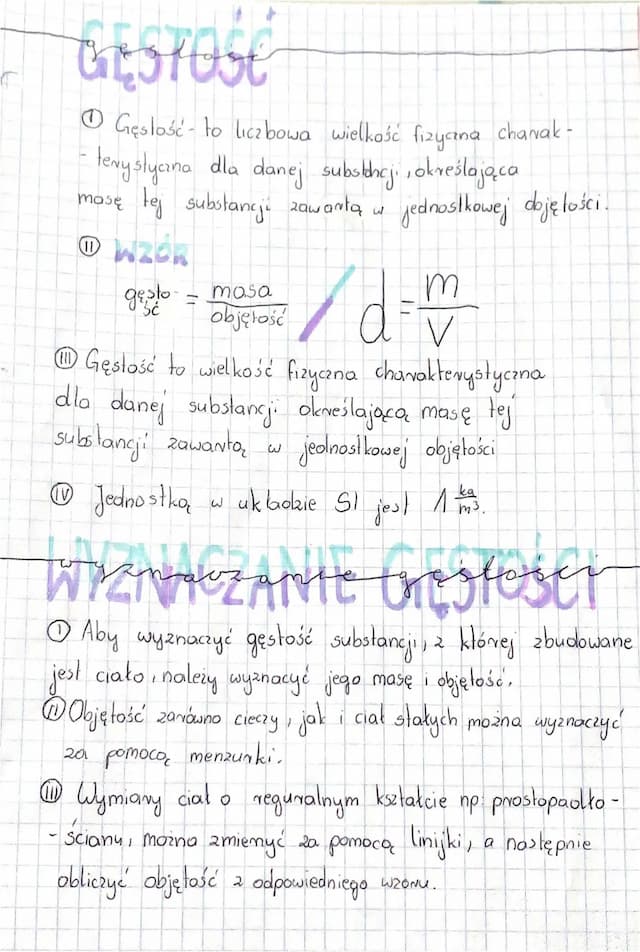 GĘSTOŚĆ
gęstość
I Gęstość - to liczbowa wielkość fizyczna charak-
- terystyczna dla danej substncji, określająca
masę tej substancji zawartą w jednostkowej objętości.
II WZÓR
gęstość = masa / objętość / d = m / V
III Gęstość to wielkość fizyczna charakterystyczna
dla danej substancji określającą masę tej
substancji zawartą w jednostkowej objętości
IV Jednostką w układzie SI jest 1 kg/m³.
WYZNACZANIE GĘSTOŚCI
wyznaczanie gęstości
I Aby wyznaczyć gęstość substancji, z której zbudowane
jest ciało, należy wyznacyć jego masę i objętość.
II Objętość zarówno cieczy, jak i ciał stałych można wyznaczyć
za pomocą menzurki.
III Wymiary ciał o reguralnym kształcie np: prostopadło-
- ścianu, można zmierzyć za pomocą linijki, a następnie
obliczyć objętość z odpowiedniego wzoru.